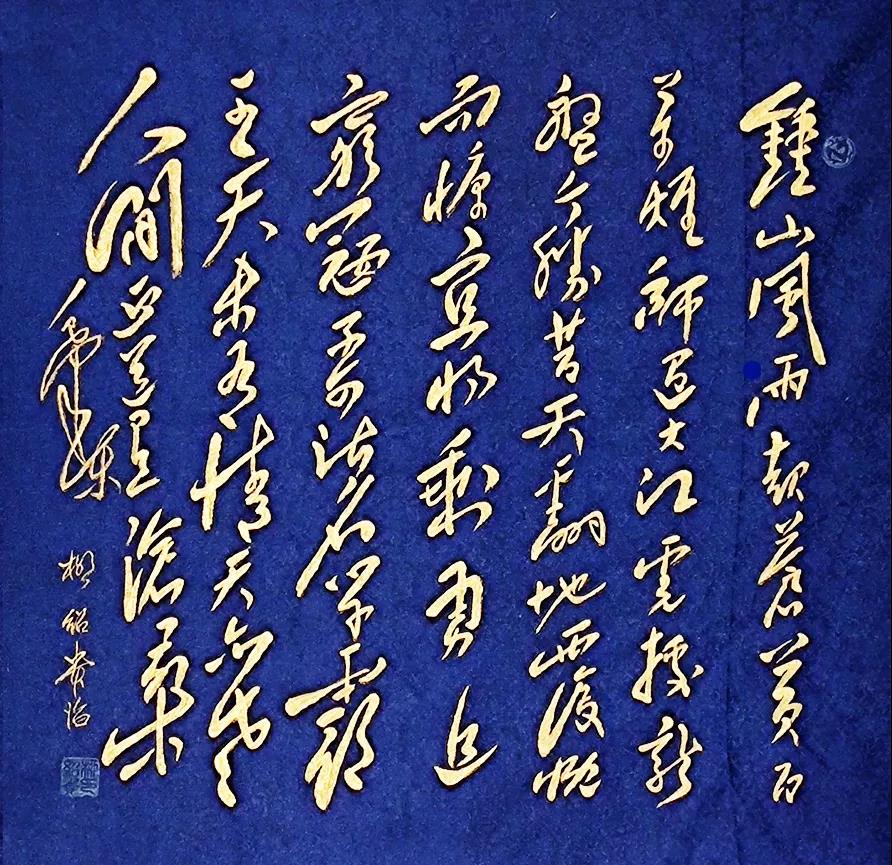 鍾山風雨起蒼黃百
萬雄師過大江虎踞龍
盤今勝昔天翻地覆慨
而慷宜將剩勇追
窮寇不可沽名學霸
王天若有情天亦老
人間正道是滄桑
毛澤東